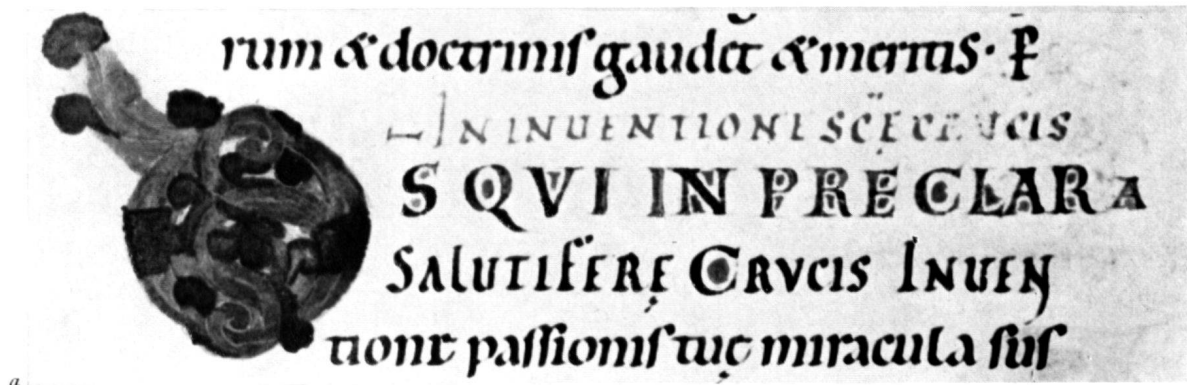 rum & doctrinis gaudet & meritis· P̄
IN INUENTIONE SCĘ CRUCIS
DS QVI IN PRECLARA
SALUTIFERĘ CRVCIS INUEN
tione passionis tuę miracula sus
a